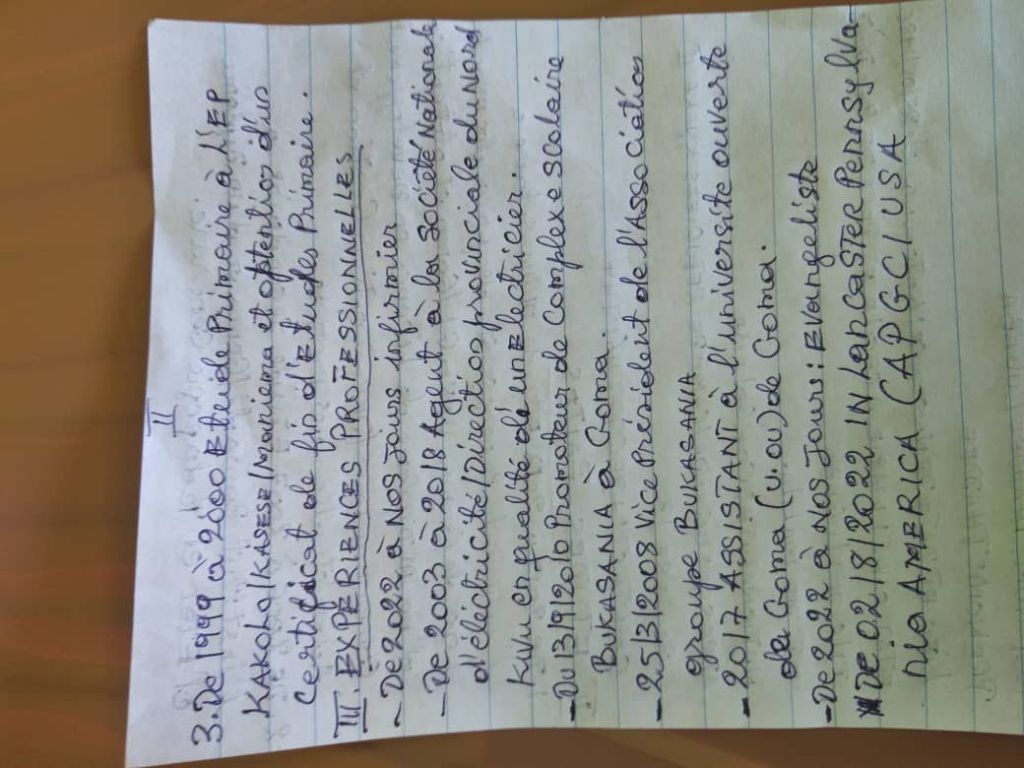 II
3. De 1999 à 2000 Etude Primaire à l'EP
KAKOLO/KASESE/Maniema et optention d'un
certificat de fin d'Etudes Primaire.
III. EXPERIENCES PROFESSIONNELLES
- De 2022 à Nos jours infirmier
- De 2003 à 2018 Agent à la société Nationale
d'éléctricité/Direction provinciale du Nord
Kivu en qualité d'un Electricien.
- Du 13/9/2010 Promoteur de Complexe scolaire
BUKASANIA à Goma.
- 25/3/2008 Vice Président de l'Association
groupe BUKASANIA
- 2017 ASSISTANT à l'université ouverte
de Goma (U.OU) de Goma.
- De 2022 à Nos Jours: Evangeliste
DE 02/8/2022 IN LANCASTER Pennsylva-
nia AMERICA (APGCI USA